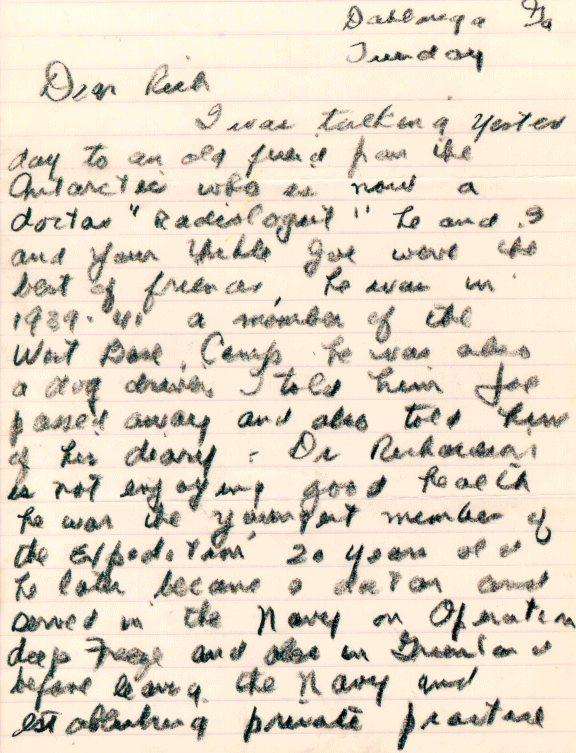 Dahlonega Ga
Tuesday
Dear Rich
I was talking yester
day to an old friend from the
Antarctic who is now a
doctor "Radiologist" he and I
and your Uncle Joe were the
best of friends, he was in
1939-41 a member of the
West Base Camp, he was also
a dog driver, I told him Joe
passed away and also told him
of his diary - Dr Richardson
is not enjoying good health
he was the youngest member of
the Expedition, 20 years old
he later became a doctor and
served in the Navy on Operation
deep Freeze and also in Greenland
before leaving the Navy and
establishing private practice